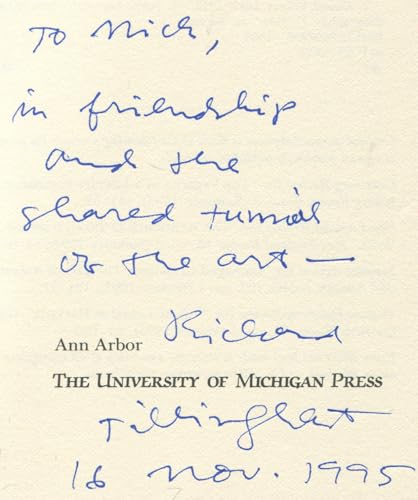 To Nick,
in friendship
and the
shared turmoil
of the art —
Richard
Ann Arbor
THE UNIVERSITY OF MICHIGAN PRESS
Tillinghast
16 Nov. 1995